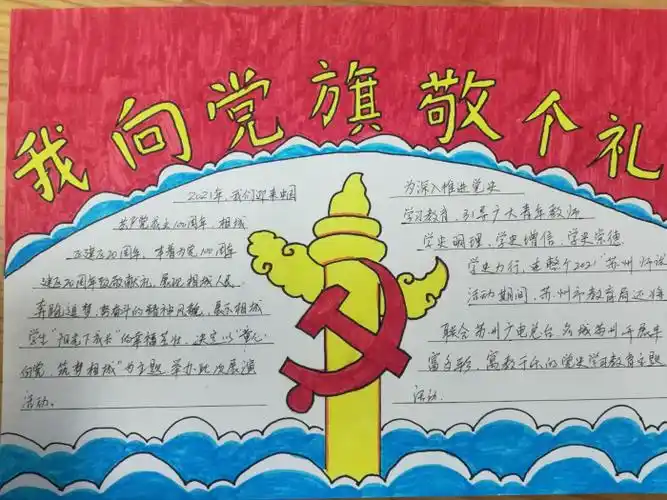 我向党旗敬个礼
2021年,我们迎来中国
共产党成立100周年,相城
区建区20周年,本着为党100周年
建区20周年致敬献礼,展现相城人民
奔跑追梦,勇奋斗的精神风貌,展示相城
学生"阳光下成长"的幸福生活,决定以"童心
向党 筑梦相城"为主题,举办此次展演
活动。
为深入推进党史
学习教育,引导广大青年教师
学史明理,学史增信,学史崇德
学史力行,在整个2021"苏州
活动期间,苏州市教育局还
联合苏州广电总台 名城苏州 开展
富多彩,寓教于乐的党史学习教育主题
活动